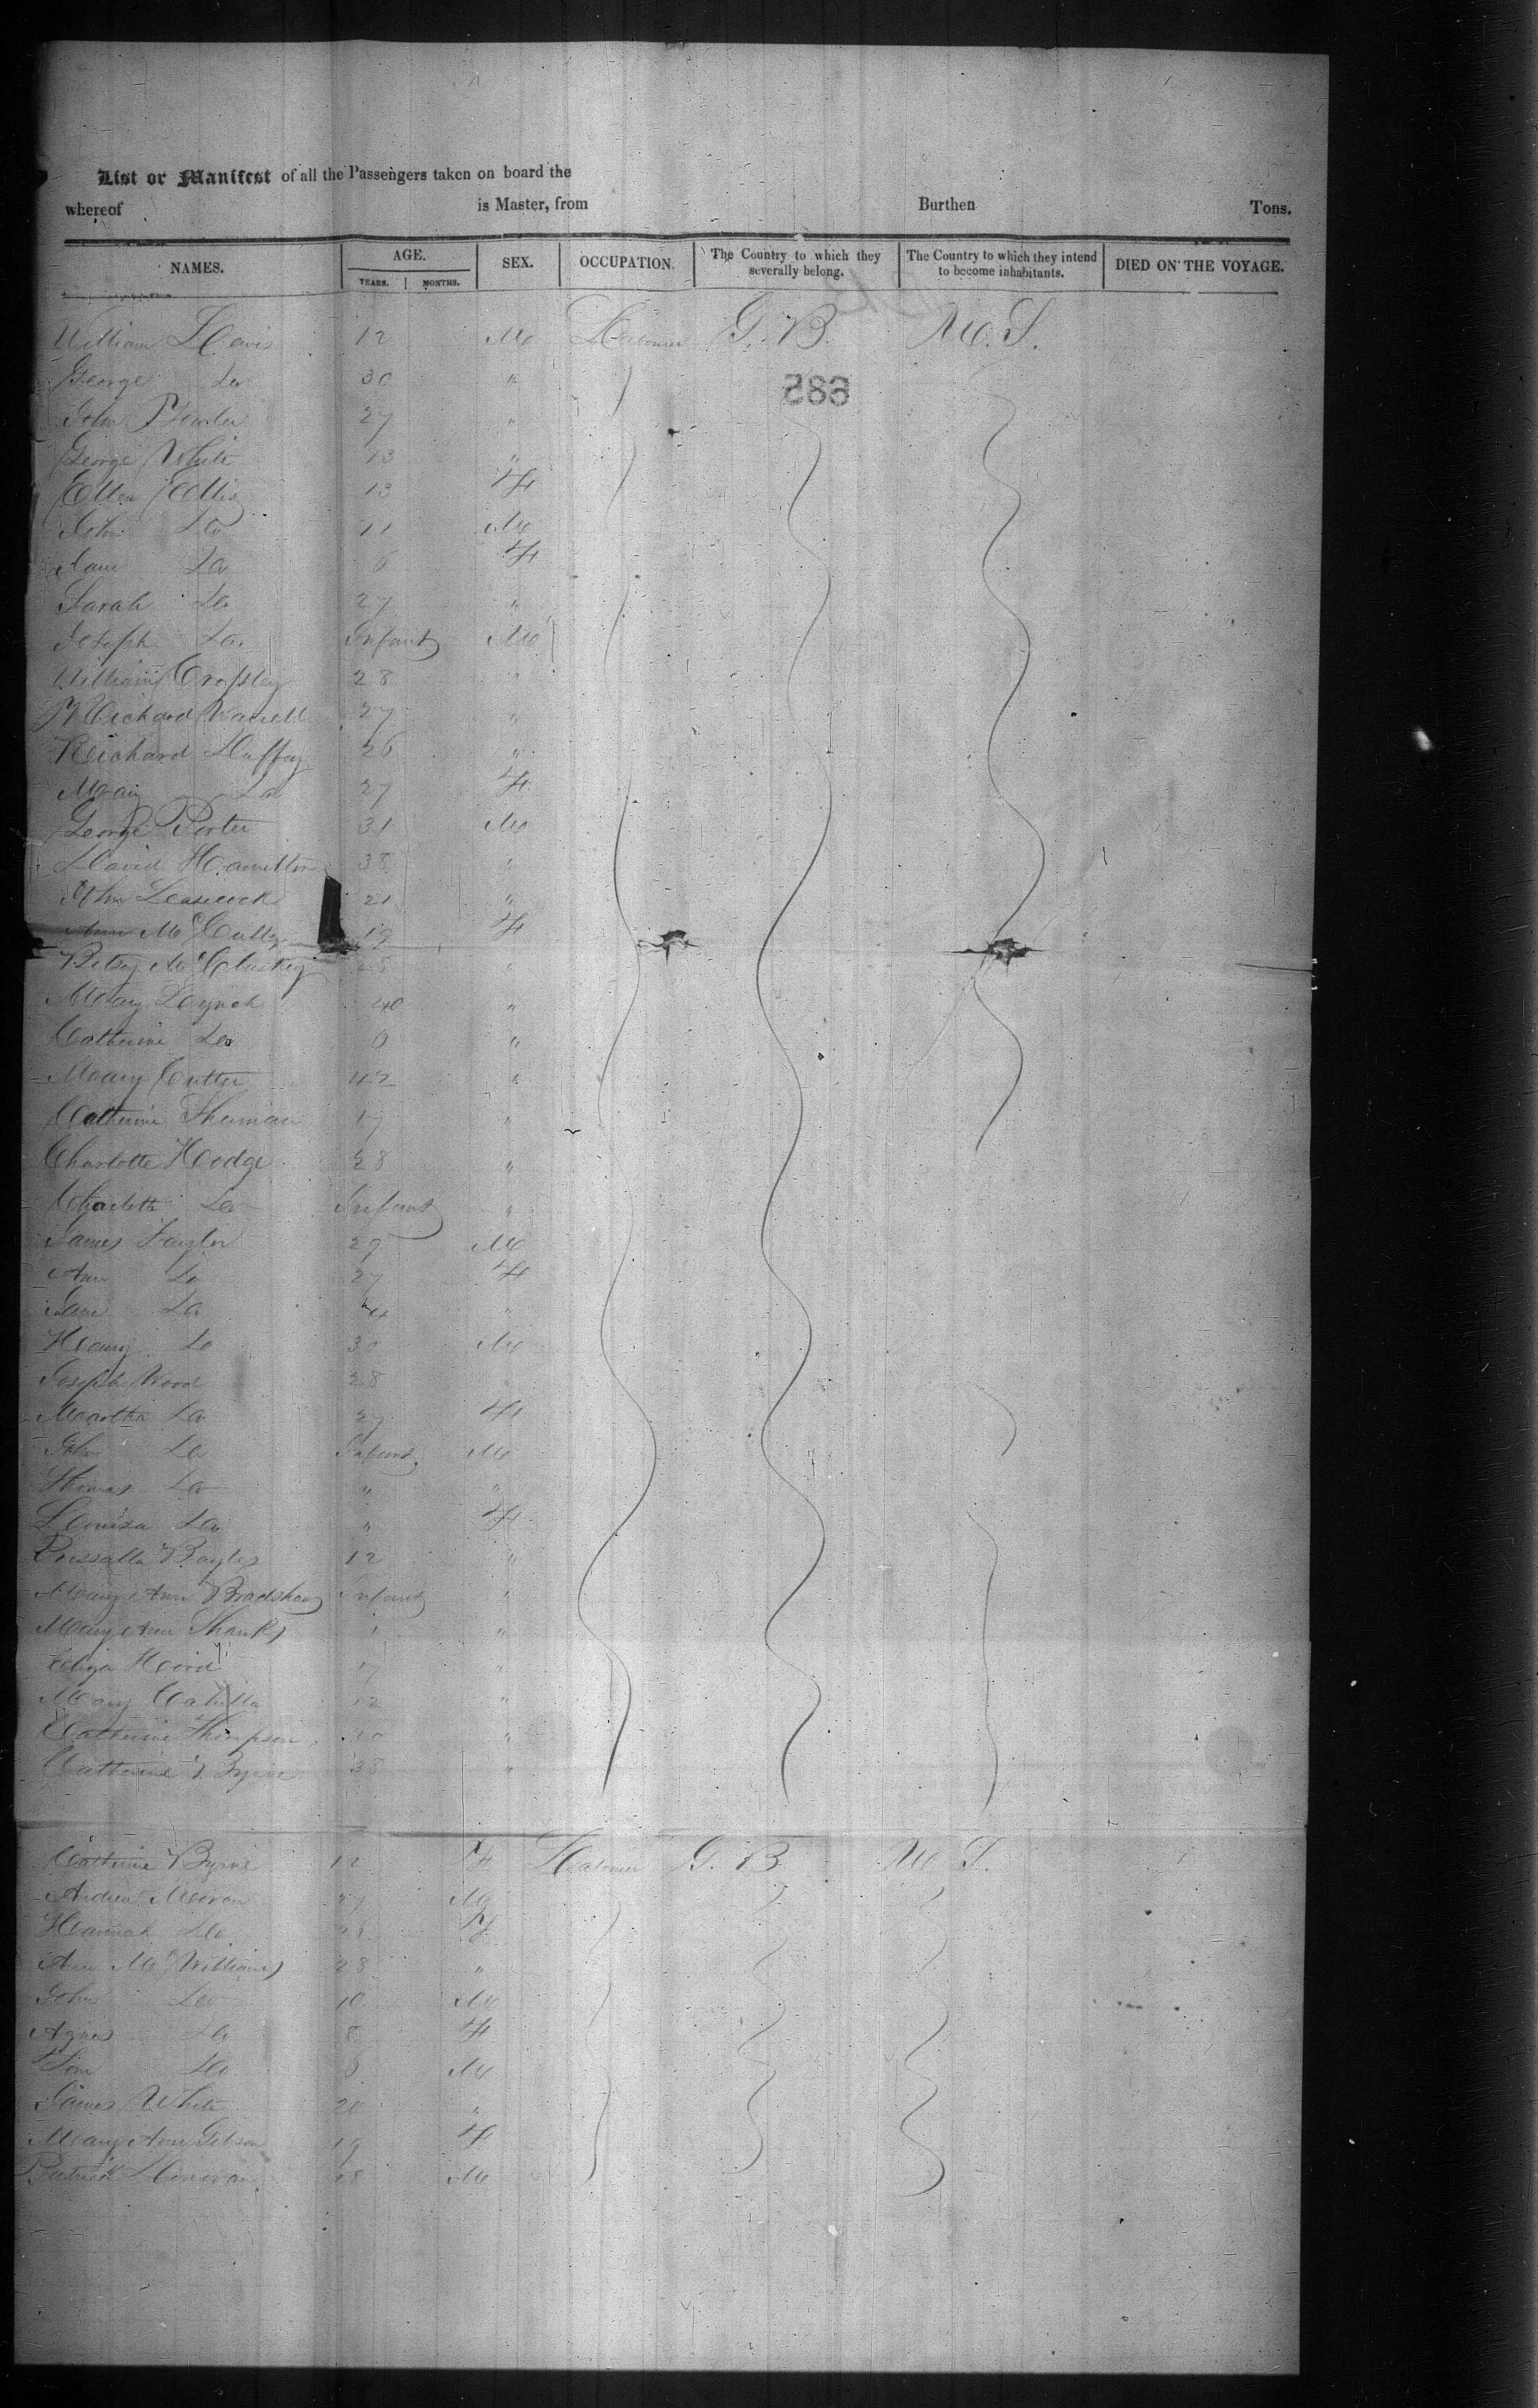 List or Manifest of all the Passengers taken on board the
whereof is Master, from Burthen Tons.
NAMES. AGE. YEARS. MONTHS. SEX. OCCUPATION. The Country to which they severally belong. The Country to which they intend to become inhabitants. DIED ON THE VOYAGE.
William Lewis 12 M Labourer G. B. U. S.
George Do 30 "
585
John Fowler 27 "
George White 13 "
Ellen Ellis 13 F
John Do 11 M
Jane Do 6 F
Sarah Do 27 "
Joseph Do Infant M
William Crossley 28 "
Richard 27 "
Richard Duffey 26 "
Mary Do 27 F
George Porter 31 M
David Hamilton 38 "
John 21 "
Ann Mc 19 F
Betsy McCluskey 28 "
Mary Lynch 40 "
Catherine Do "
Mary Cutter 42 "
Catherine 17 "
Charlotte Hodge 28 "
Charlotte Do Infant "
James Taylor 29 M
Ann Do 27 F
Jane Do 4 "
Henry Do 30 M
Joseph Wood 28
Martha Do 27 F
John Do Infant M
Thomas Do " "
Louisa Do " F
12 "
Mary Ann Bradshaw Infant "
Mary Ann Shanks "
Eliza 17 "
Mary 12 "
Catherine Thompson 20 "
Catherine Byrne 38 "
Catherine Byrne 12 F Labourer G. B. U. S.
Andrew Moran 27 M
Hannah Do 26 F
Ann McWilliams 28 "
John Do 10 M
Agnes Do 8 F
Do 6 M
James White 20 "
Mary Ann Gibson 19 F
Patrick Donovan 28 M